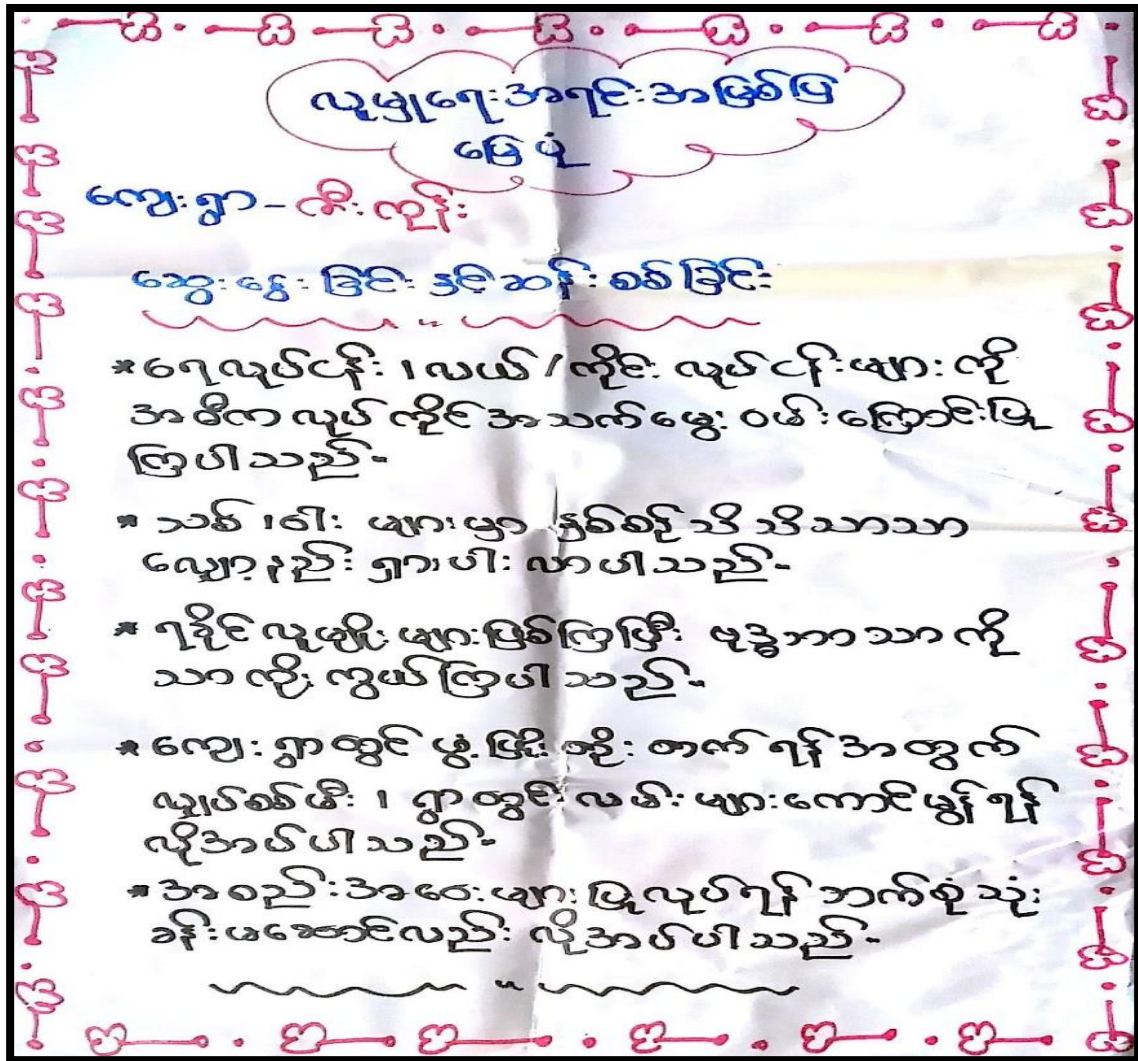 လူမှုရေးအရင်းအမြစ်ပြ
မြေပုံ
ကျေးရွာ - အီးကုန်း
ဆွေးနွေးခြင်းနှင့်ဆန်းစစ်ခြင်း
*ရေလုပ်ငန်း ၊ လယ် / ကိုင်း လုပ်ငန်းများကို
အဓိကလုပ်ကိုင်အသက်မွေးဝမ်းကြောင်းပြု
ကြပါသည်-
* သစ် ၊ ဝါး များမှာ နှစ်စဉ်သိသိသာသာ
လျော့နည်းရှားပါးလာပါသည်-
* ရခိုင်လူမျိုးများဖြစ်ကြပြီး ဗုဒ္ဓဘာသာကို
သာကိုးကွယ်ကြပါသည်-
*ကျေးရွာတွင် ဖွံ့ဖြိုးတိုးတက်ရန်အတွက်
လျှပ်စစ်မီး ၊ ရွာတွင်းလမ်းများကောင်မွန်ရန်
လိုအပ်ပါသည်-
*အစည်းအဝေးများပြုလုပ်ရန် ဘက်စုံသုံး
ခန်းမဆောင်လည်း လိုအပ်ပါသည်-